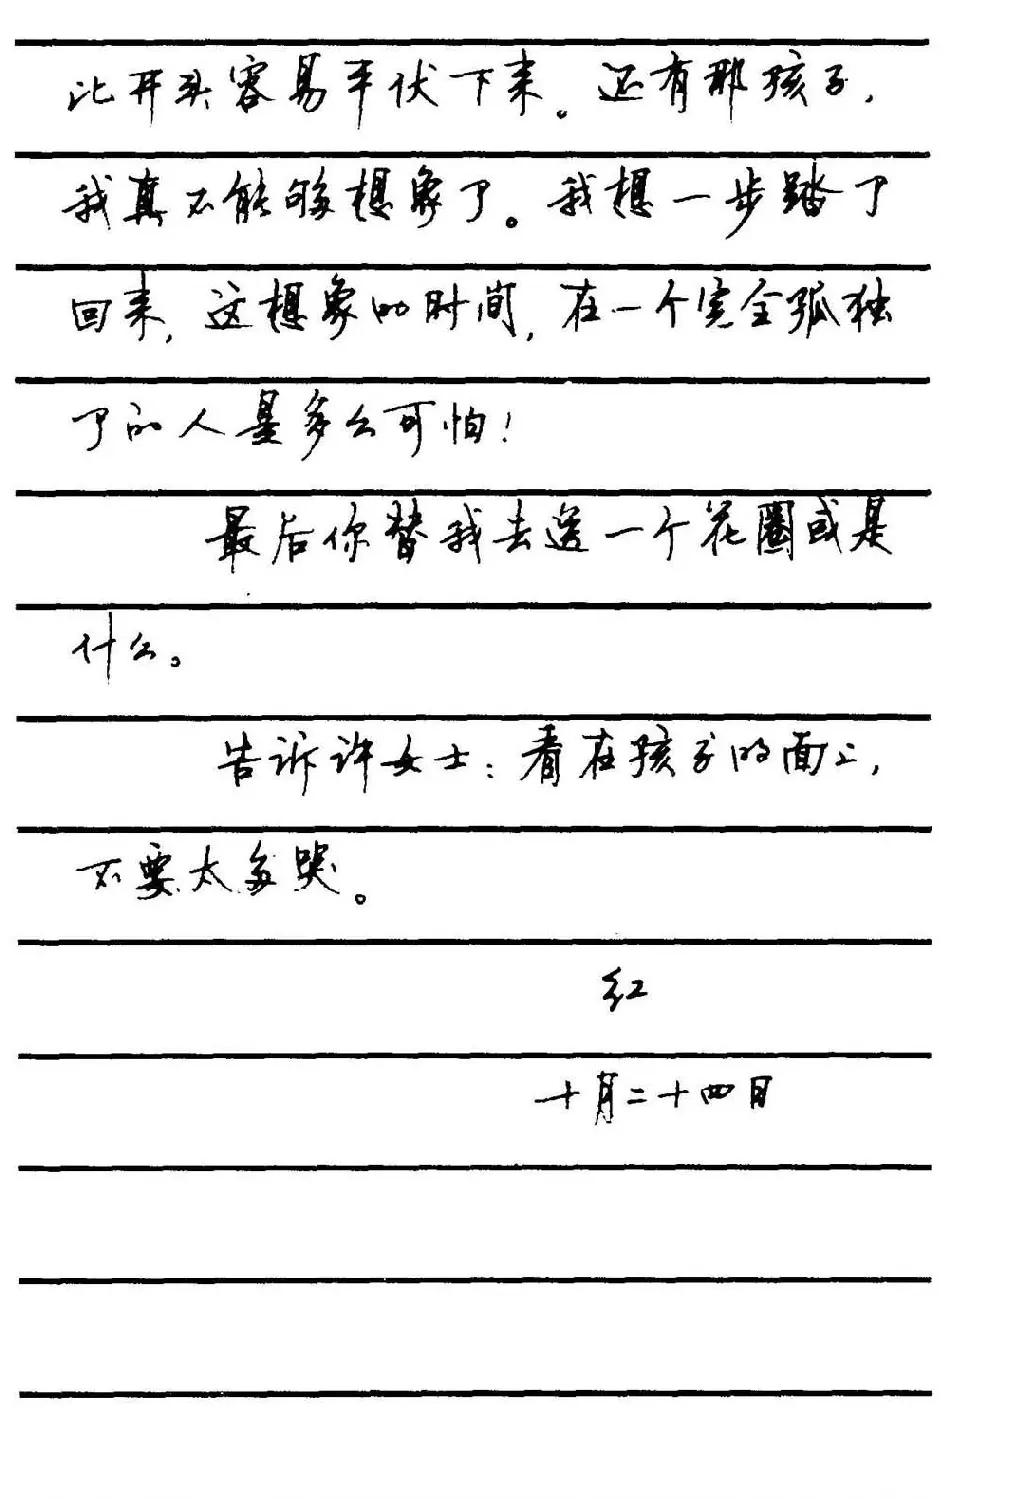 比开头容易平伏下来。还有那孩子，
我真不能够想象了。我想一步踏了
回来，这想象的时间，在一个完全孤独
了的人是多么可怕！
最后你替我去送一个花圈或是
什么。
告诉许女士：看在孩子的面上，
不要太多哭。
红
十月二十四日